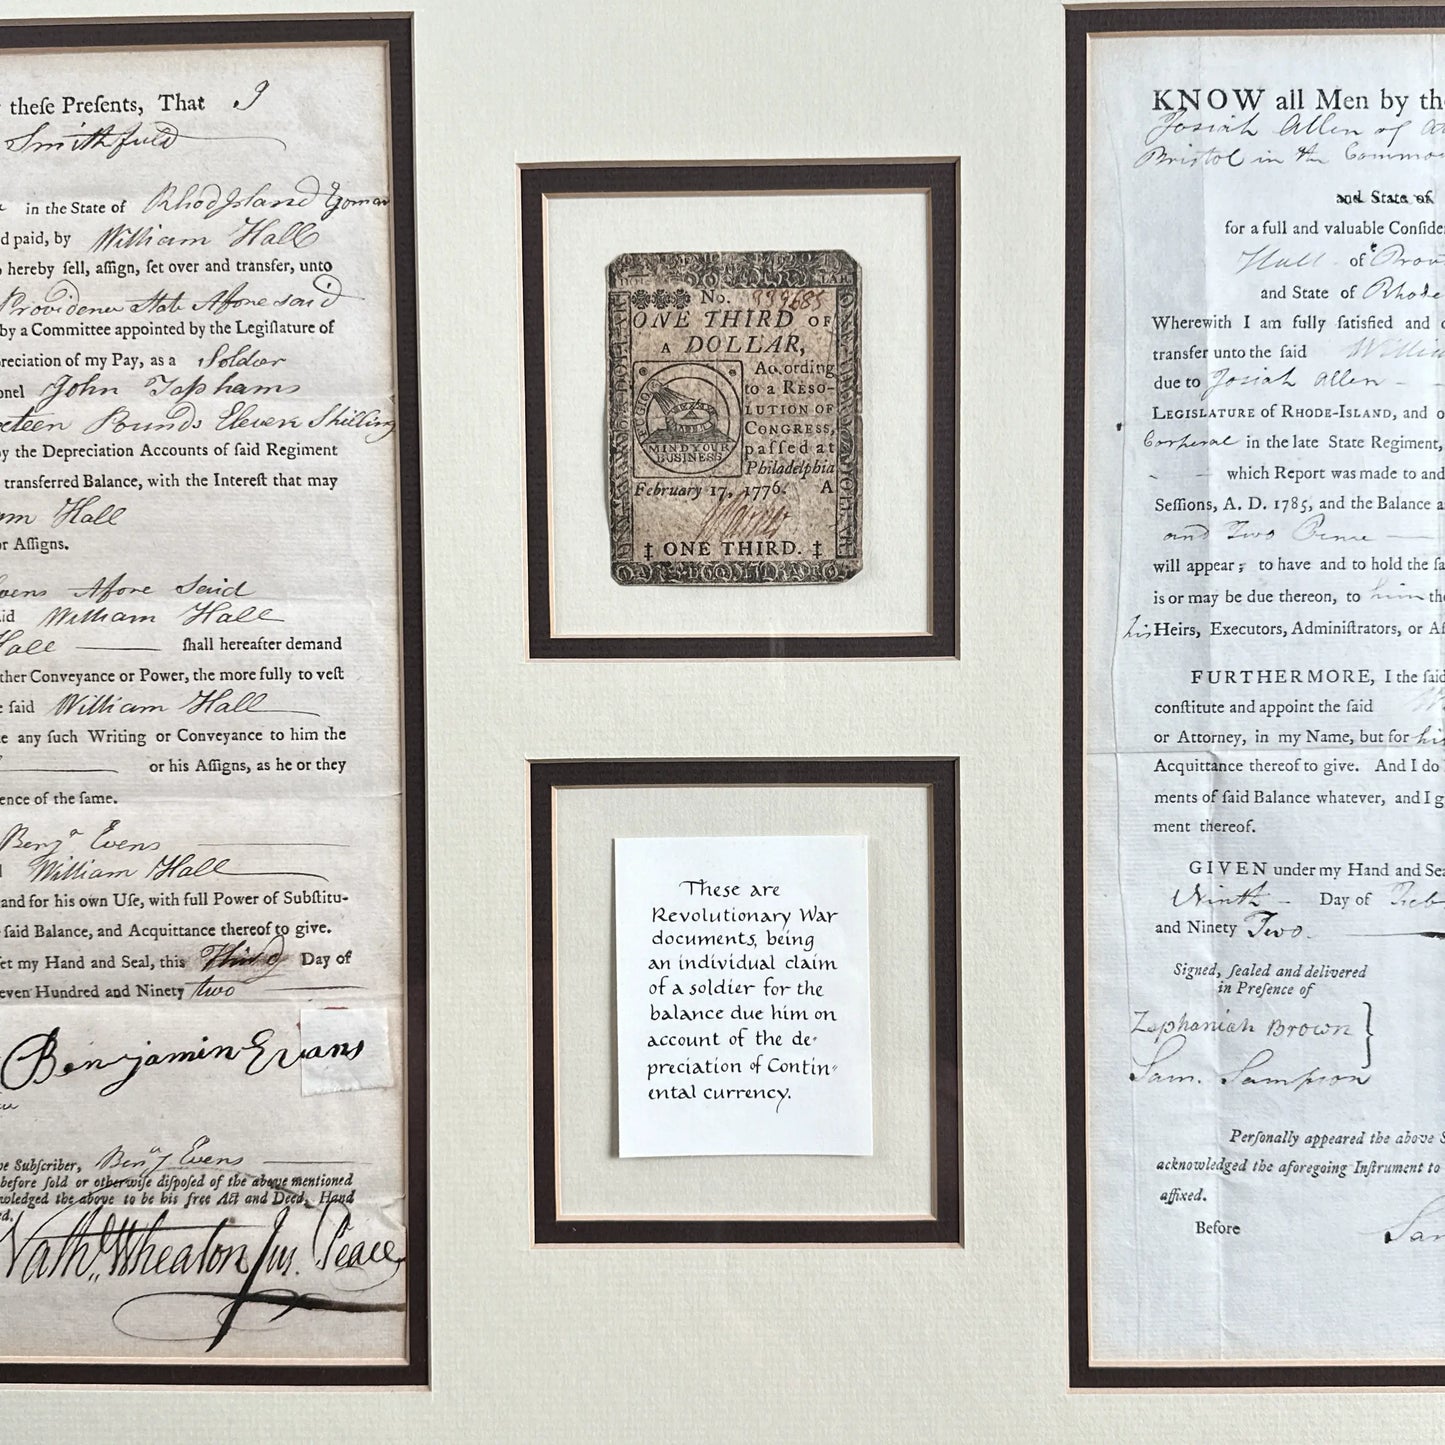 these Presents, That I
Smithfield
in the State of Rhod Island Yoman
d paid, by William Hall
hereby sell, assign, set over and transfer, unto
Providence State Afore said
by a Committee appointed by the Legislature of
reciation of my Pay, as a Soldier
onel John Tophams
Pounds Eleven Shilling
y the Depreciation Accounts of said Regiment
transferred Balance, with the Interest that may
am Hall
or Assigns.
vens Afore Said
id William Hall
Hall shall hereafter demand
ther Conveyance or Power, the more fully to vest
e said William Hall
e any such Writing or Conveyance to him the
or his Assigns, as he or they
ence of the same.
Benja Evens
William Hall
and for his own Use, with full Power of Substitu-
said Balance, and Acquittance thereof to give.
et my Hand and Seal, this Third Day of
even Hundred and Ninety two
Benjamin Evans
e Subscriber, Benja Evens
before sold or otherwise disposed of the above mentioned
wledged the above to be his free Act and Deed, Hand
d.
Nathl. Wheaton Jus. Peace
No. 939685
ONE THIRD OF
A DOLLAR,
According
to a RESO-
LUTION OF
CONGRESS,
passed at
Philadelphia
February 17, 1776. A
FUGIO
MIND YOUR
BUSINESS
‡ ONE THIRD. ‡
These are
Revolutionary War
documents, being
an individual claim
of a soldier for the
balance due him on
account of the de-
preciation of Contin-
ental currency.
KNOW all Men by the
Josiah Allen of
Bristol in the Common
and State of
for a full and valuable Conside
Hall of Prov
and State of Rhode
Wherewith I am fully satisfied and
transfer unto the said William
due to Josiah Allen
LEGISLATURE of RHODE-ISLAND, and o
Corperal in the late State Regiment,
which Report was made to and
Sessions, A. D. 1785, and the Balance a
and Two Pence
will appear; to have and to hold the sa
is or may be due thereon, to him the
his Heirs, Executors, Administrators, or As
FURTHERMORE, I the said
constitute and appoint the said
or Attorney, in my Name, but for his
Acquittance thereof to give. And I do
ments of said Balance whatever, and I g
ment thereof.
GIVEN under my Hand and Sea
Ninth Day of Feb
and Ninety Two
Signed, sealed and delivered
in Presence of
Zephaniah Brown
Sam. Sampson
Personally appeared the above S
acknowledged the aforegoing Instrument to
affixed.
Before Sam